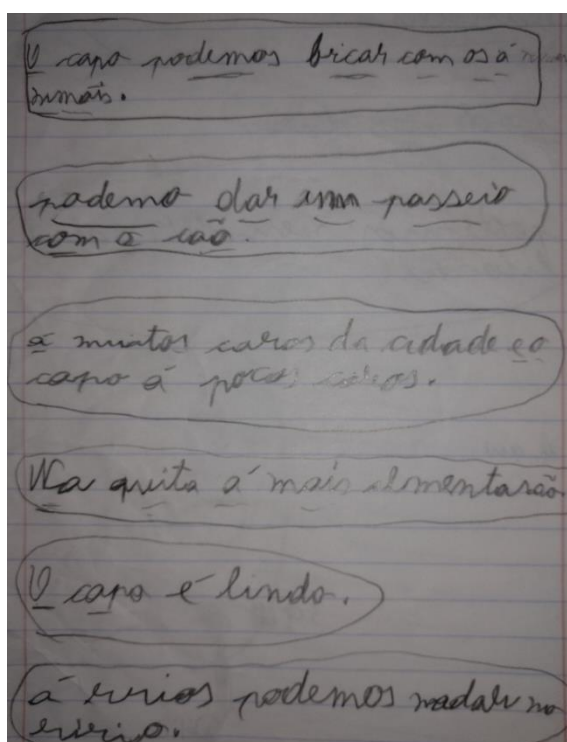 O capo podemos bricar com os á
nimais.
podemo dar um passeio
com o cão.
á muitos caros da cidade e o
capo á pocos caros.
Na quita á mais alimentasão
O capo é lindo.
á rrios podemos nadar no
rrio.